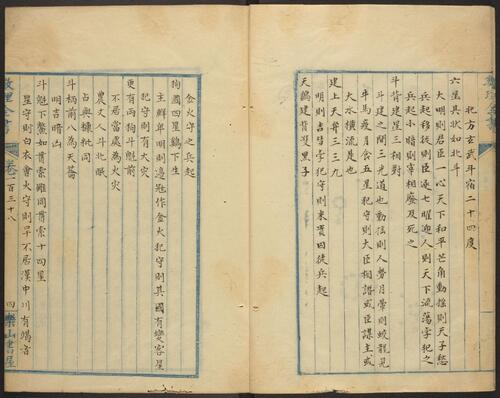 北方玄武斗宿二十四度
六星其狀如北斗
大明則君臣一心天下和平芒角動搖則天子愁
兵起移徙則臣逐七曜迎入則天下流蕩孛犯之
兵起小暗則宰相廢及死之
斗背建星三相對
斗建之間三光道也動搖則人勞月暈則蛟龍見
牛馬疫月食五星犯守則大臣相譖或臣謀主或
大水橫流是也
建上天弁三三九
明則吉彗孛犯守則來貢囚徒兵起
天鷄建背雙黑子
金火守之兵起
狗國四星鷄下生
主鮮卑明則邊冦作金火犯守則其國有變客星
犯守則有大灾
更有兩狗斗魁前
不居當處為大灾
農丈人斗北眠
占與糠粃同
斗柄前八為天籥
明吉暗凶
斗魁下鱉如貫索雖同貫索十四星
星守則白衣會火守則旱不居漢中川有竭音
卷一百三十八
四樂山書屋